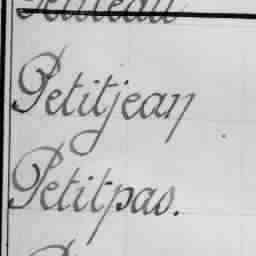 Petitjean
Petitpas.